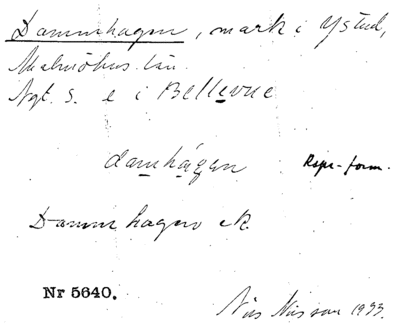 Dammhagen, mark i Ystad,
Malmöhus län.
Ngt. s. e i Bellevue
damhágen Rspr-form.
Dammhagen ek.
Nr 5640.
Nils Nilsson 1933.